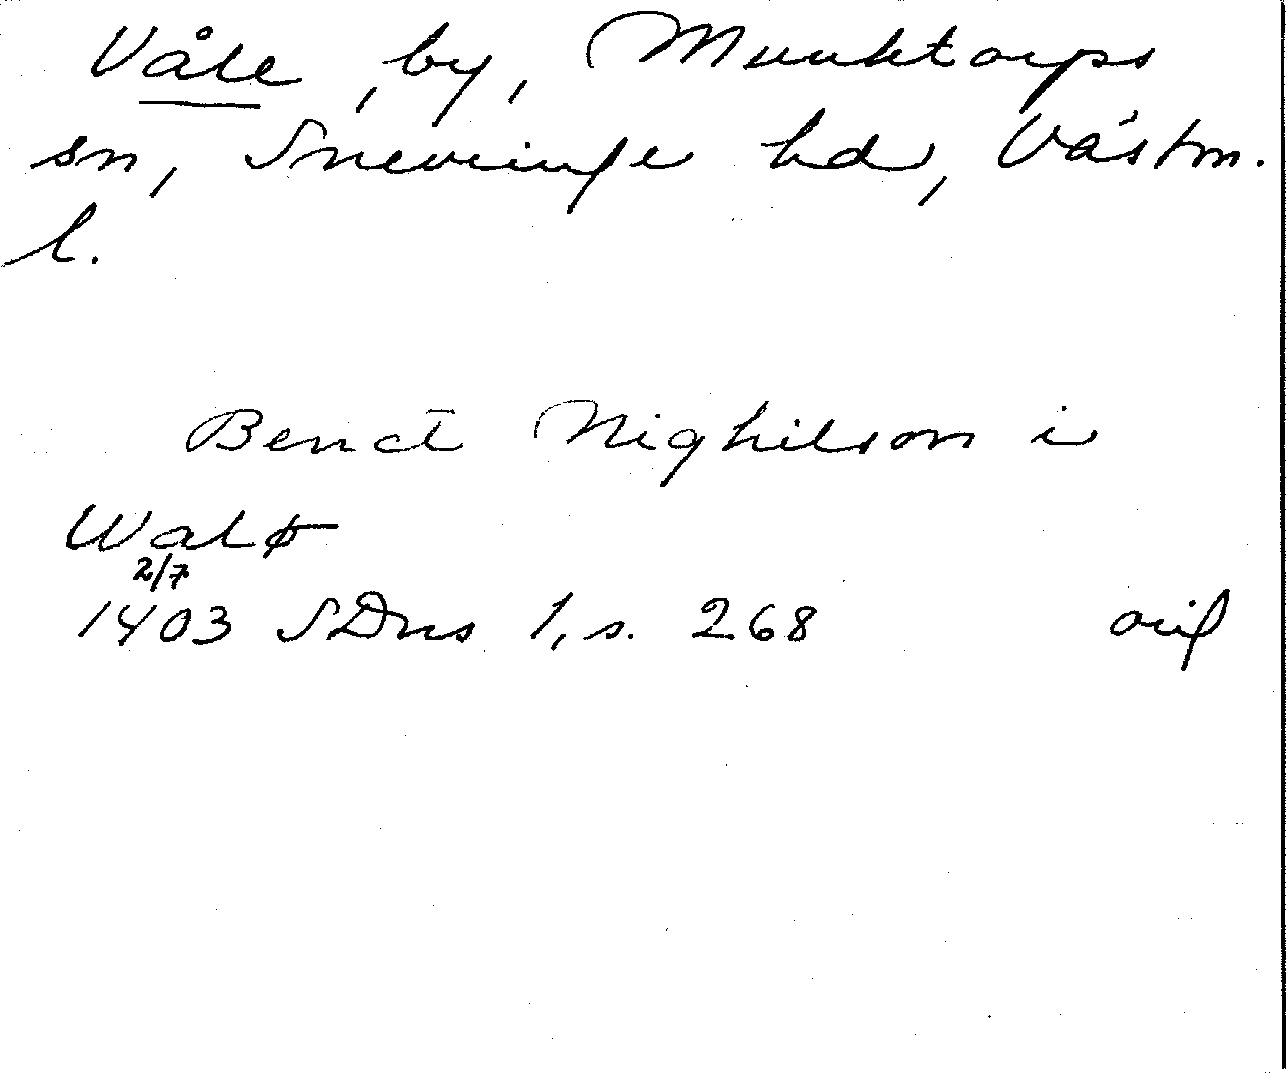 Våle, by, Munktorps
sn, Snevringe hd, Västm.
l.
Benct Nighilson i
Walø
2/7
1403 SDns 1, s. 268 orig